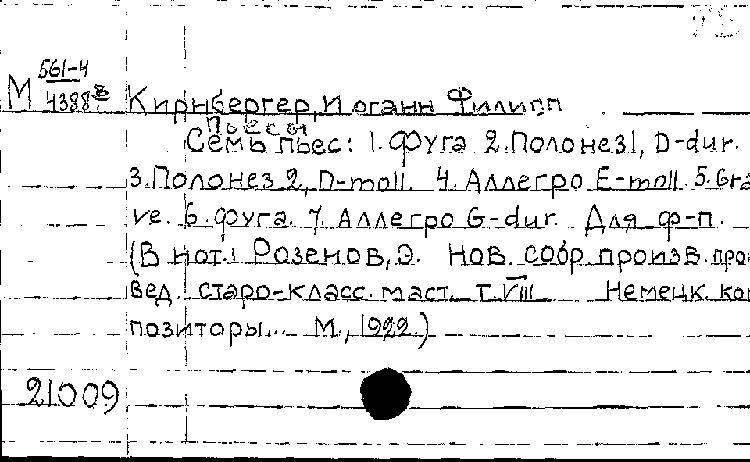 561-4
М 4388
Кирнбергер, Иоганн Филипп
Пьесы
Семь пьес: 1. Фуга 2. Полонез 1, D-dur.
3. Полонез 2, D-moll. 4. Аллегро E-moll. 5. Gra
ve. 6. фуга. 7. Аллегро G-dur. Для ф-п.
(В нот.: Розенов, Э. Нов. собр. произв. про
вед. старо-класс. маст. т. VIII Немецк. ком
позиторы... М., 1922.)
21009